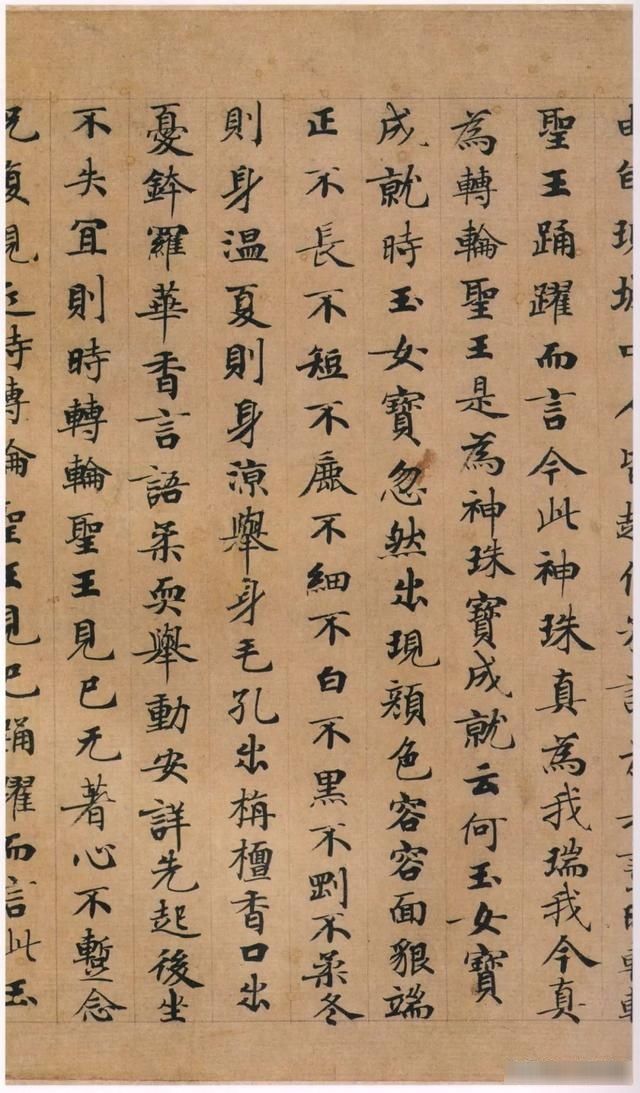 城中人皆起作
聖王踊躍而言今此神珠真為我瑞我今真
為轉輪聖王是為神珠寶成就云何玉女寶
成就時玉女寶忽然出現顏色容容面貌端
正不長不短不麁不細不白不黑不剛不柔冬
則身溫夏則身涼舉身毛孔出栴檀香口出
憂鉢羅華香言語柔耎舉動安詳先起後坐
不失宜則時轉輪聖王見已无著心不暫念
况復親近時轉輪聖王見已踊躍而言此玉